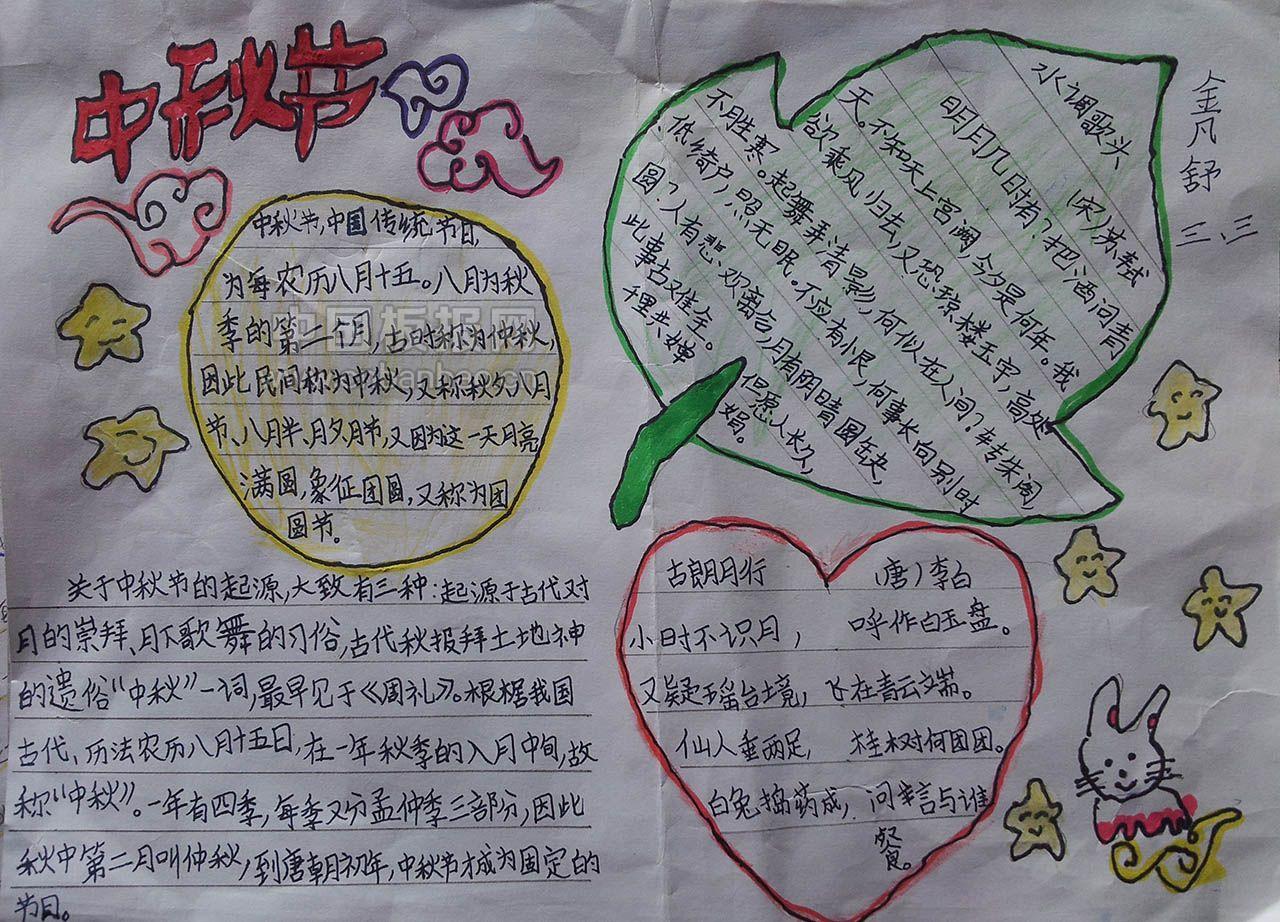 中秋节
中秋节,中国传统节日,
为每农历八月十五。八月为秋
季的第二个月,古时称为仲秋,
因此民间称为中秋,又称秋夕、八月
节、八月半、月夕、月节,又因为这一天月亮
满圆,象征团圆,又称为团
圆节。
关于中秋节的起源,大致有三种:起源于古代对
月的崇拜、月下歌舞的习俗,古代秋报拜土地神
的遗俗“中秋”一词,最早见于《周礼》。根据我国
古代、历法农历八月十五日,在一年秋季的入月中旬,故
称“中秋”。一年有四季,每季又分孟仲季三部分,因此
秋中第二月叫仲秋,到唐朝初年,中秋节才成为固定的
节日。
水调歌头 (宋)苏轼
明月几时有?把酒问青
天。不知天上宫阙,今夕是何年。我
欲乘风归去,又恐琼楼玉宇,高处
不胜寒。起舞弄清影,何似在人间?转朱阁,
低绮户,照无眠。不应有恨,何事长向别时
圆?人有悲欢离合,月有阴晴圆缺,
此事古难全。但愿人长久,
千里共婵娟。
金凡舒
三、三
古朗月行 (唐)李白
小时不识月, 呼作白玉盘。
又疑瑶台境, 飞在青云端。
仙人垂两足, 桂树何团团。
白兔捣药成, 问言与谁
餐。
中国板报网